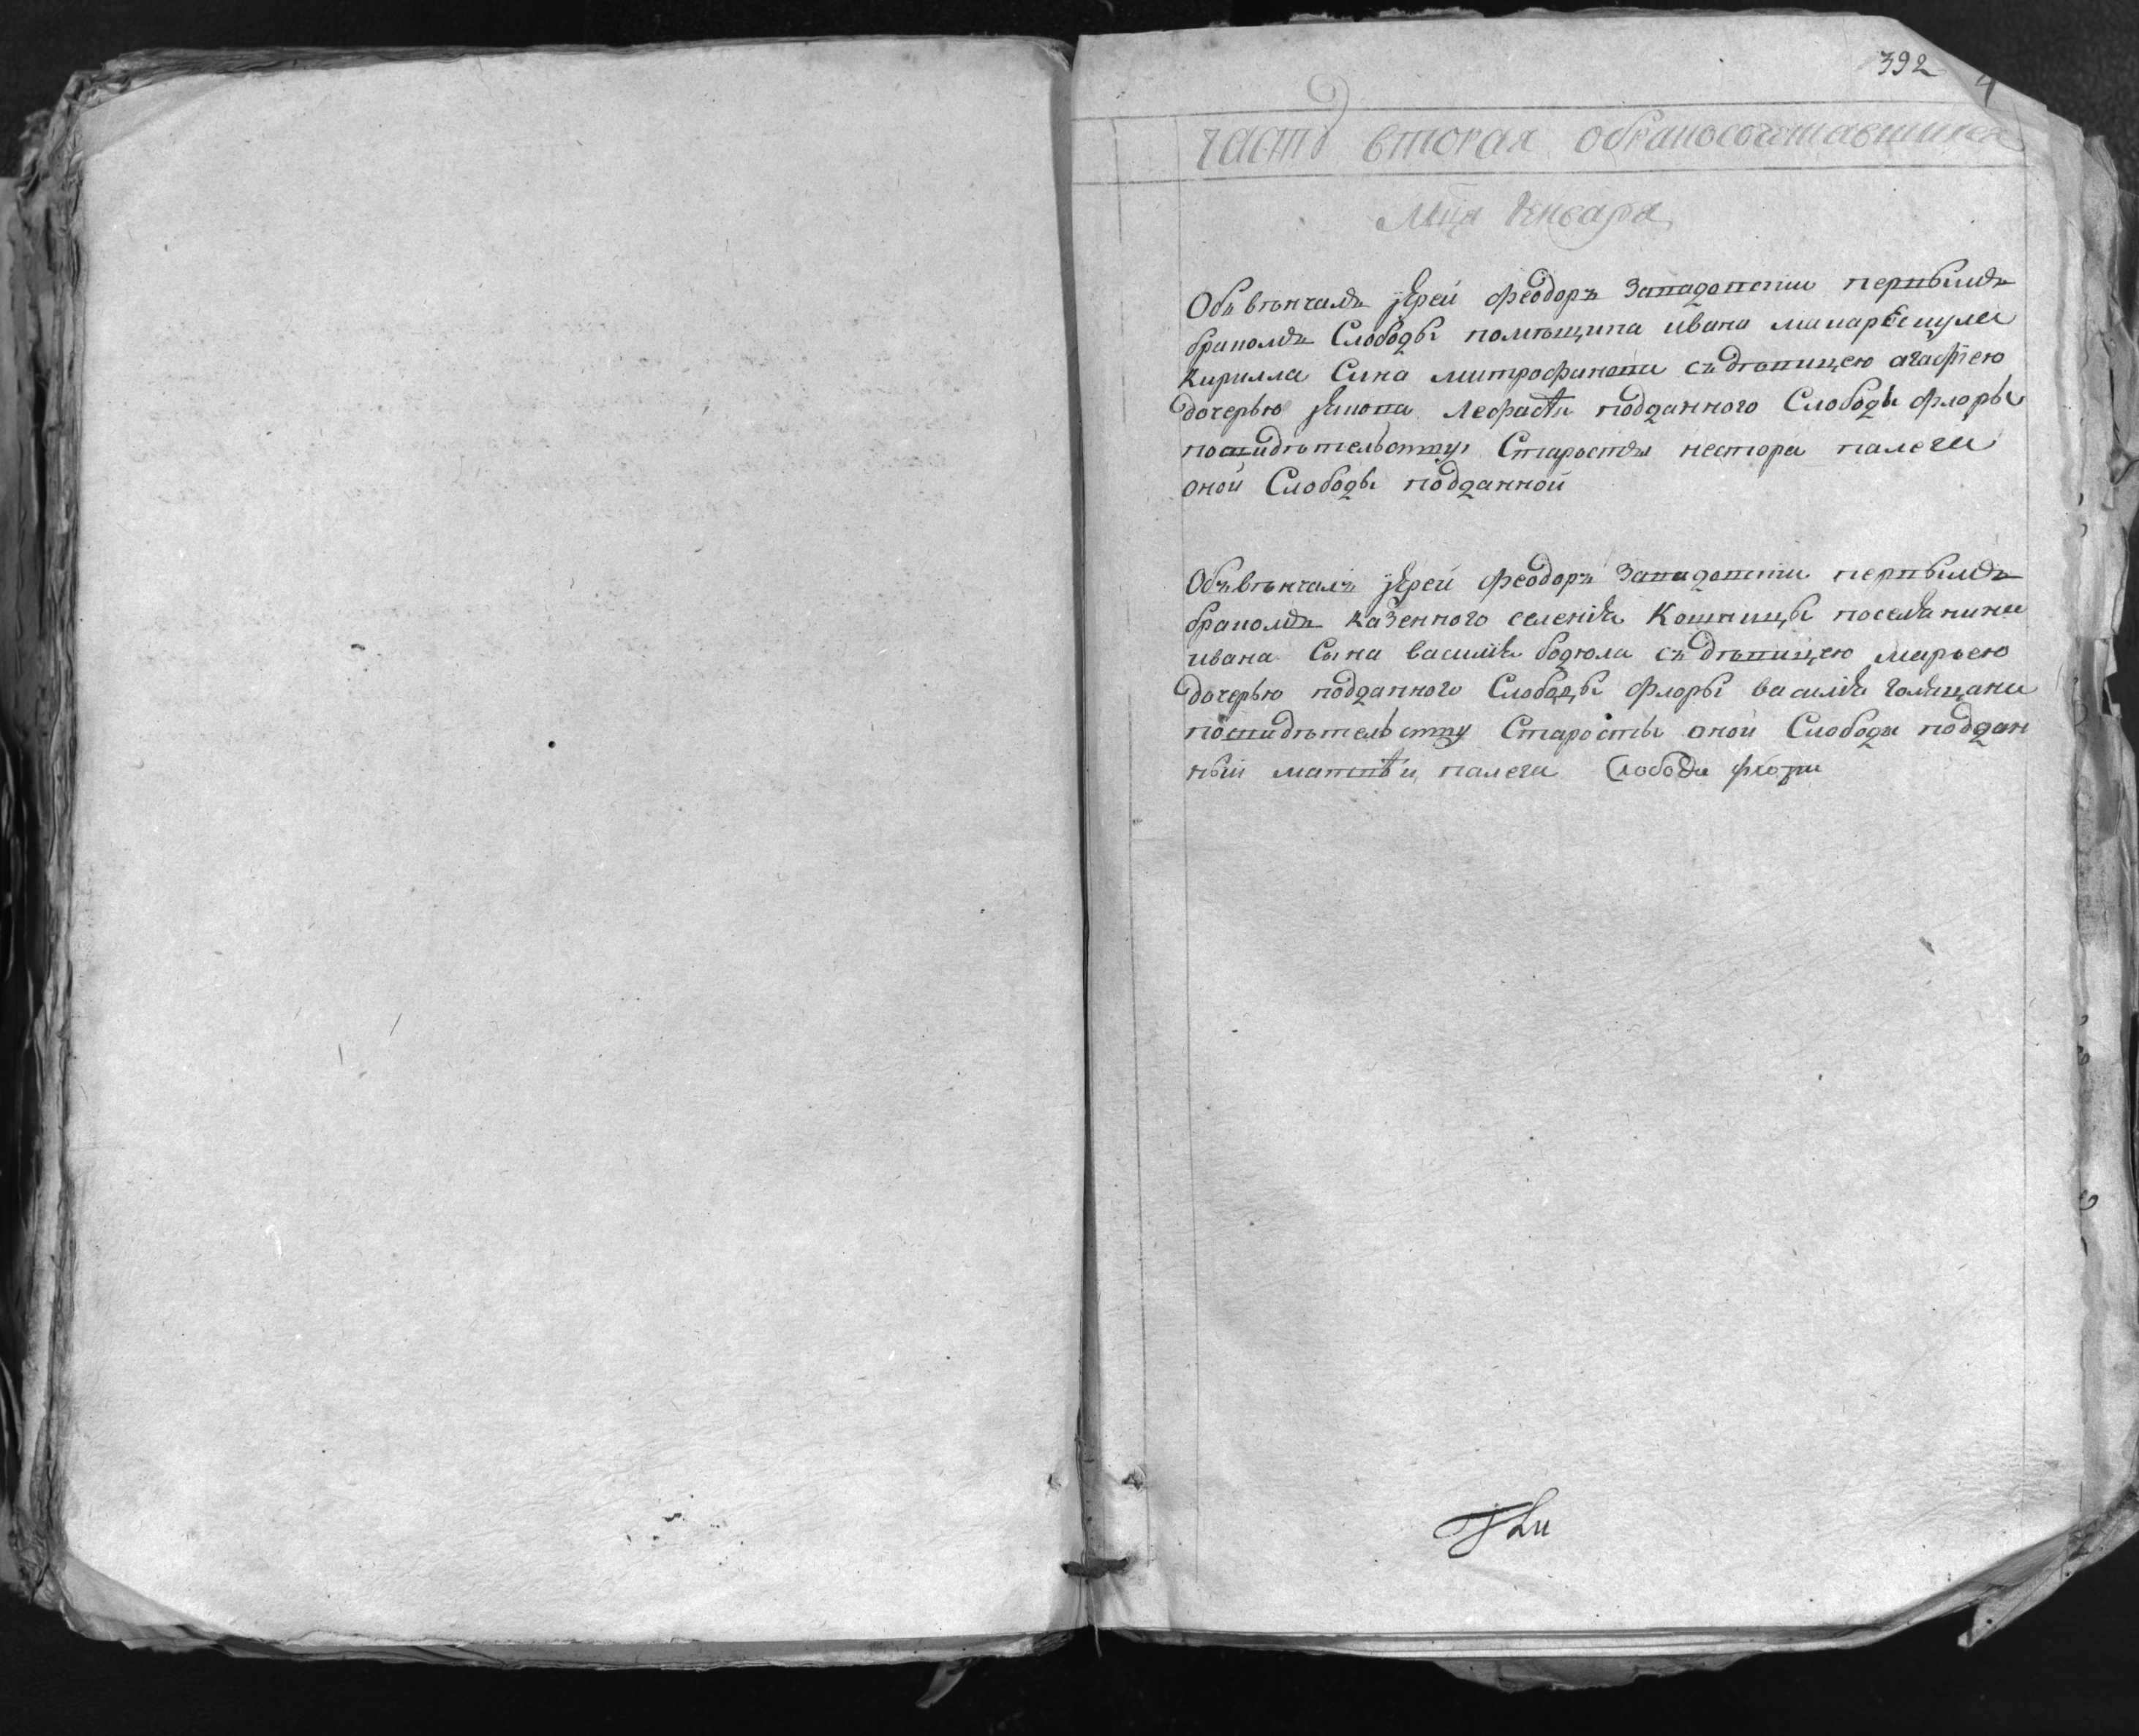 392
4
часть вторая обракосочетавшихся
Мца Генваря
Объвѣнчалъ іерей Феодоръ Западовскии первымъ
бракомъ Слободы помѣщика ивана макарескула
Кирилла Сина митрофанови съ дѣвицею агафіею
дочерью подданного Слободы флоры
посвидѣтельству Старосты нестора палеги
оной Слободы подданной
Объвѣнчалъ іерей Феодоръ Западовскии первымъ
бракомъ казенного селенія Кошницы поселянина
ивана Сына василія бодюла съ дѣвицею марьею
дочерью подданного Слободы флоры василія
посвидѣтельству Старосты оной Слободы поддан
ныи матвѣи палега Слободи флори